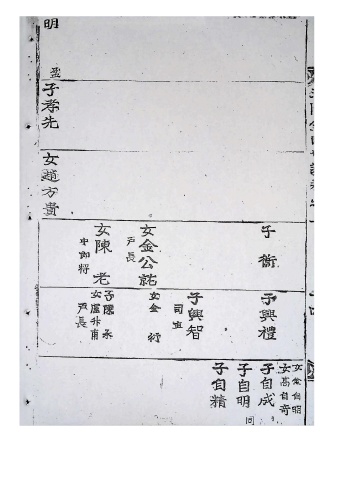 子衙
女金公祐
戶長
女陳老
中郎將
女趙方貴
子孝先
明
子興禮
子興智
司直
女金行
子陳永
女盧升甫
戶長
女金自明
女高自奇
子自成
子自明
同
子自精